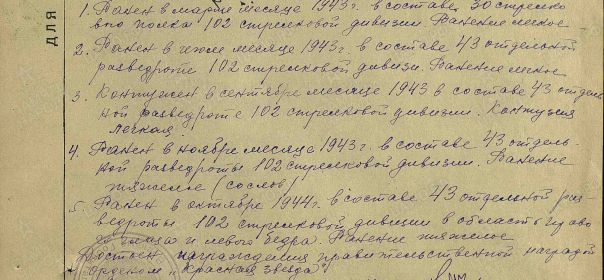 для
1. Ранен в марте месяце 1943 г. в составе 30 стрелко
вого полка 102 стрелковой дивизии. Ранение легкое.
2. Ранен в июле месяце 1943 г. в составе 43 отдельной
разведроте 102 стрелковой дивизи. Ранение легкое
3. Контужен в сентябре месяце 1943 в составе 43 отдель
ной разведроте 102 стрелковой дивизии. Контузия
легкая.
4. Ранен в ноябре месяце 1943 г. в составе 43 отдель-
ной разведроты 102 стрелковой дивизии. Ранение
тяжелое (со слов)
5. Ранен в октябре 1944 г. в составе 43 отдельной раз
ведроты 102 стрелковой дивизии в область право
и левого бедра. Ранение тяжелое
достоен награждения правительственной наградой
орденом "Красная звезда"